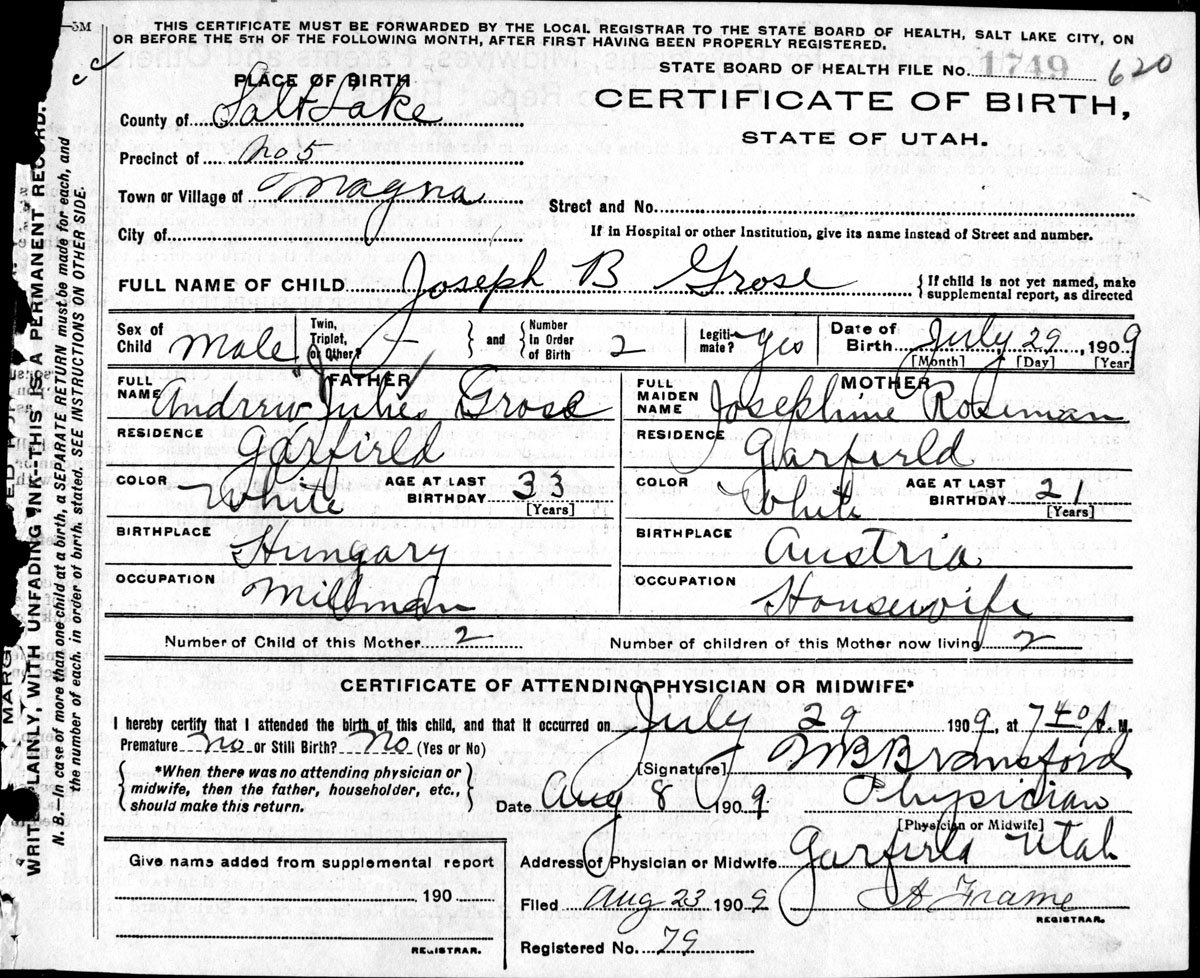 -5M
THIS CERTIFICATE MUST BE FORWARDED BY THE LOCAL REGISTRAR TO THE STATE BOARD OF HEALTH, SALT LAKE CITY, ON
OR BEFORE THE 5TH OF THE FOLLOWING MONTH, AFTER FIRST HAVING BEEN PROPERLY REGISTERED.
STATE BOARD OF HEALTH FILE No. 1749 620
CERTIFICATE OF BIRTH,
STATE OF UTAH.
PLACE OF BIRTH
County of Salt Lake
Precinct of No 5
Town or Village of Magna
Street and No.
City of
If in Hospital or other Institution, give its name instead of Street and number.
FULL NAME OF CHILD Joseph B Grose
{ If child is not yet named, make
supplemental report, as directed
Sex of Child Male
Twin, Triplet, or Other? -
} and {
Number In Order of Birth 2
Legiti-mate? yes
Date of Birth July 29, 1909
[Month] [Day] [Year]
FATHER
FULL NAME Andrew Julies Grose
RESIDENCE Garfield
COLOR White AGE AT LAST BIRTHDAY 33
[Years]
BIRTHPLACE Hungary
OCCUPATION Millman
MOTHER
FULL MAIDEN NAME Josephine Roseman
RESIDENCE Garfield
COLOR White AGE AT LAST BIRTHDAY 21
[Years]
BIRTHPLACE Austria
OCCUPATION Housewife
Number of Child of this Mother 2 Number of children of this Mother now living 2
CERTIFICATE OF ATTENDING PHYSICIAN OR MIDWIFE*
I hereby certify that I attended the birth of this child, and that it occurred on July 29 1909, at 7 40 A. M.
Premature No or Still Birth? No (Yes or No)
[Signature] M B Bransford
{ *When there was no attending physician or
midwife, then the father, householder, etc.,
should make this return. }
Date Aug 8 1909. Physician
[Physician or Midwife]
Give name added from supplemental report
190
REGISTRAR.
Address of Physician or Midwife Garfield Utah
Filed Aug 23 1909 A Frame
REGISTRAR.
Registered No. 79
WRITE PLAINLY, WITH UNFADING INK--THIS IS A PERMANENT RECORD.
N. B.—In case of more than one child at a birth, a SEPARATE RETURN must be made for each, and
the number of each. in order of birth. stated. SEE INSTRUCTIONS ON OTHER SIDE.